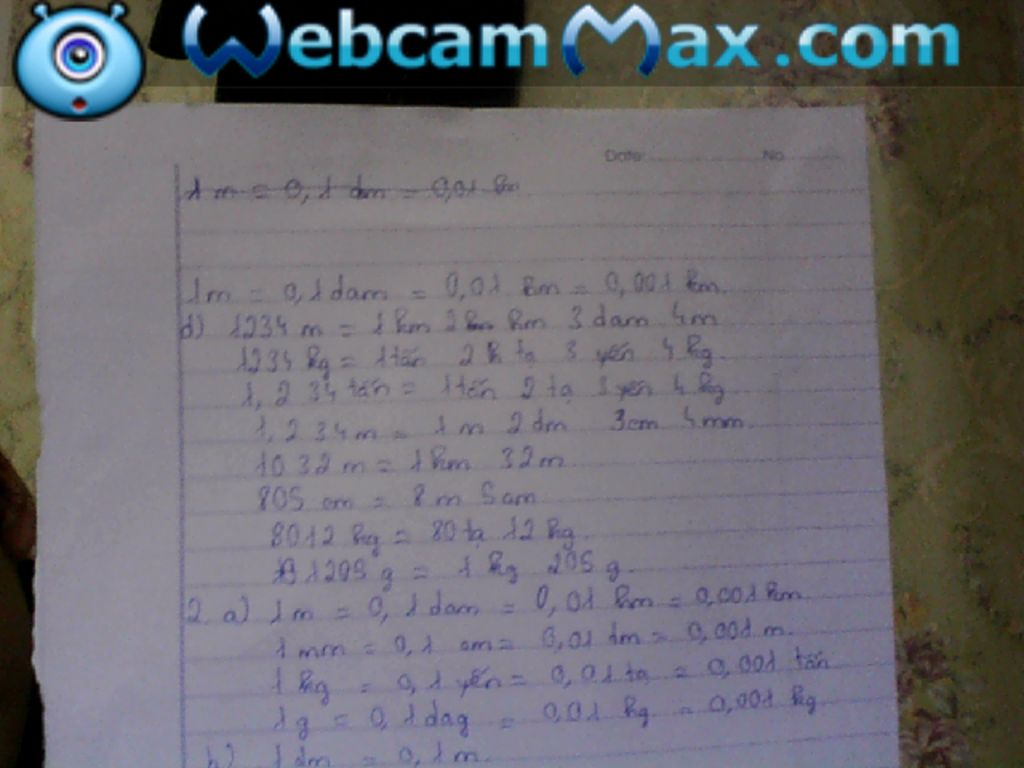 WebcamMax.com
Date: No
1 m = 0,1 dm = 0,01 hm
1m = 0,1 dam = 0,01 hm = 0,001 km.
d) 1234 m = 1 km 2 hm 3 dam 4m
1234 kg = 1 tấn 2 tạ 3 yến 4 kg.
1,234 tấn = 1 tấn 2 tạ 3 yến 4 kg
1,234 m = 1 m 2 dm 3 cm 4 mm.
1032 m = 1 km 32 m
805 cm = 8 m 5 cm
8012 kg = 80 tạ 12 kg.
1205 g = 1 kg 205 g.
2. a) 1m = 0,1 dam = 0,01 hm = 0,001 km.
1 mm = 0,1 cm = 0,01 dm = 0,001 m.
1 kg = 0,1 yến = 0,01 tạ = 0,001 tấn
1g = 0,1 dag = 0,01 hg = 0,001 kg.
b) 1 dm = 0,1 m.